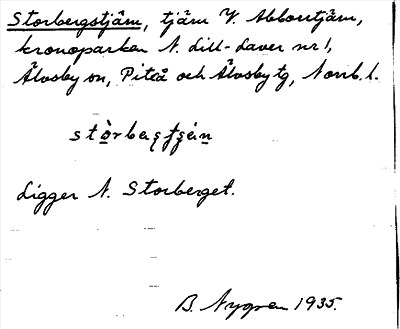 Storbergstjärn, tjärn V. Abborrtjärn,
kronoparken N. Lill-Laver nr 1,
Älvsby sn, Piteå och Älvsby tg, Norrb. l.
Ligger N. Storberget.
B. Nygren 1935.